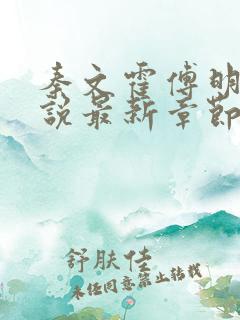 秦文霍傅明
说最新章节
舒肤佳
未经同意禁止转载